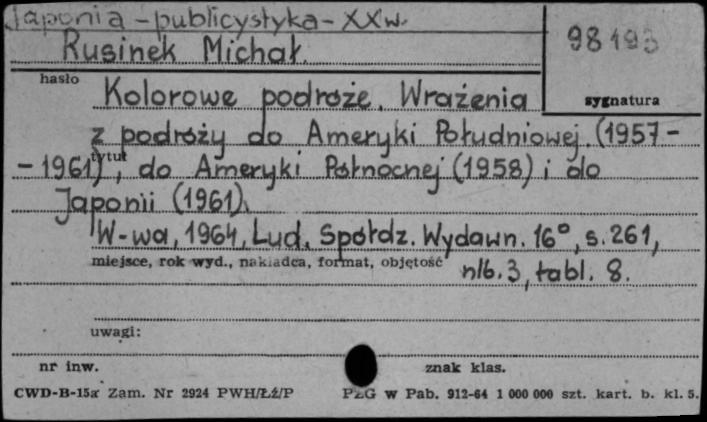 Japonia - publicystyka - XXw.
Rusinek Michał.
98193
hasło
sygnatura
Kolorowe podróże. Wrażenia
z podróży do Ameryki Południowej (1957 -
- 1961), do Ameryki Północnej (1958) i do
tytuł
Japonii (1961).
W-wa, 1964, Lud. Spółdz. Wydawn. 16°, s. 261,
miejsce, rok wyd., nakładca, format, objętość
nlb. 3, tabl. 8.
uwagi:
nr inw.
znak klas.
CWD-B-15a Zam. Nr 2924 PWH/Łź/P
PZG w Pab. 912-64 1 000 000 szt. kart. b. kl. 5.